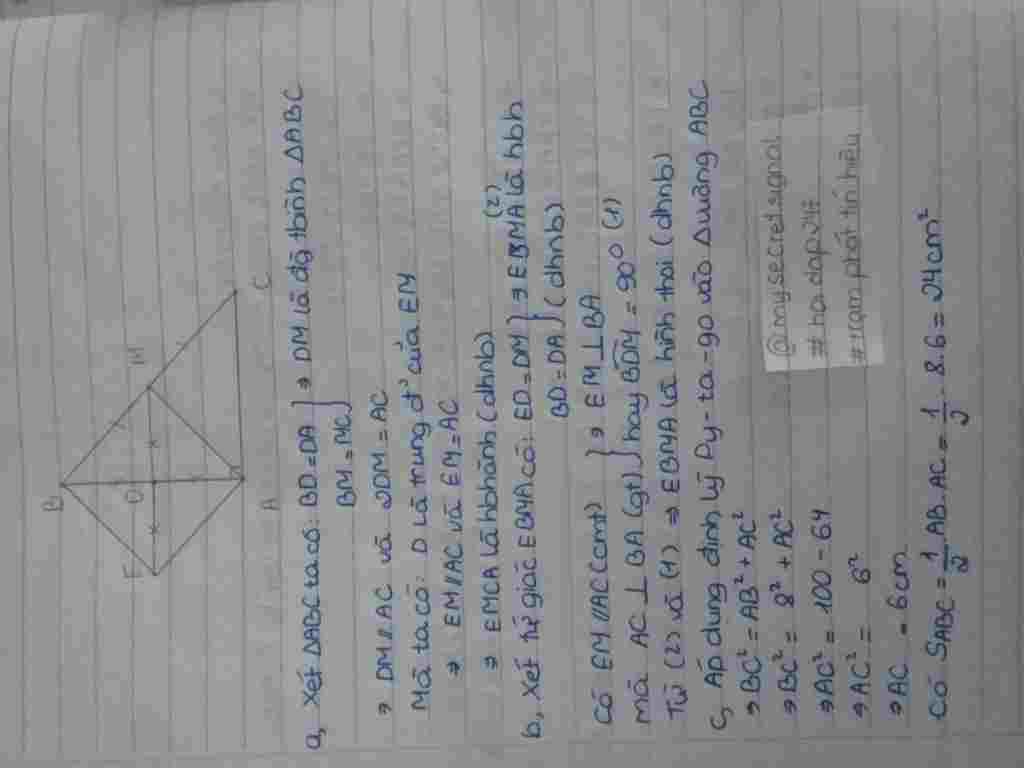 B
E
D
M
A
C
a, Xét ΔABC ta có: BD = DA } ⇒ DM là đg tbình ΔABC
BM = MC
⇒ DM // AC và 2DM = AC
Mà ta có: D là trung đ' của EM
⇒ EM // AC và EM = AC
⇒ EMCA là hbhành (dhnb)
b, Xét tứ giác EBMA có: ED = DM } ⇒ EBMA là hbh (2)
BD = DA (dhnb)
Có EM // AC (cmt) } ⇒ EM ⊥ BA
mà AC ⊥ BA (gt) hay BDM = 90° (1)
Từ (2) và (1) ⇒ EBMA là hình thoi (dhnb)
c, Áp dụng định lý Py-ta-go vào Δ vuông ABC
⇒ BC² = AB² + AC²
⇒ BC² = 8² + AC²
⇒ AC² = 100 - 64
⇒ AC² = 6²
⇒ AC = 6cm
Có SABC = 1/2 AB. AC = 1/2 . 8.6 = 24cm²
@mysecretsignal
#hoidap247
#trạmpháttínhiệu